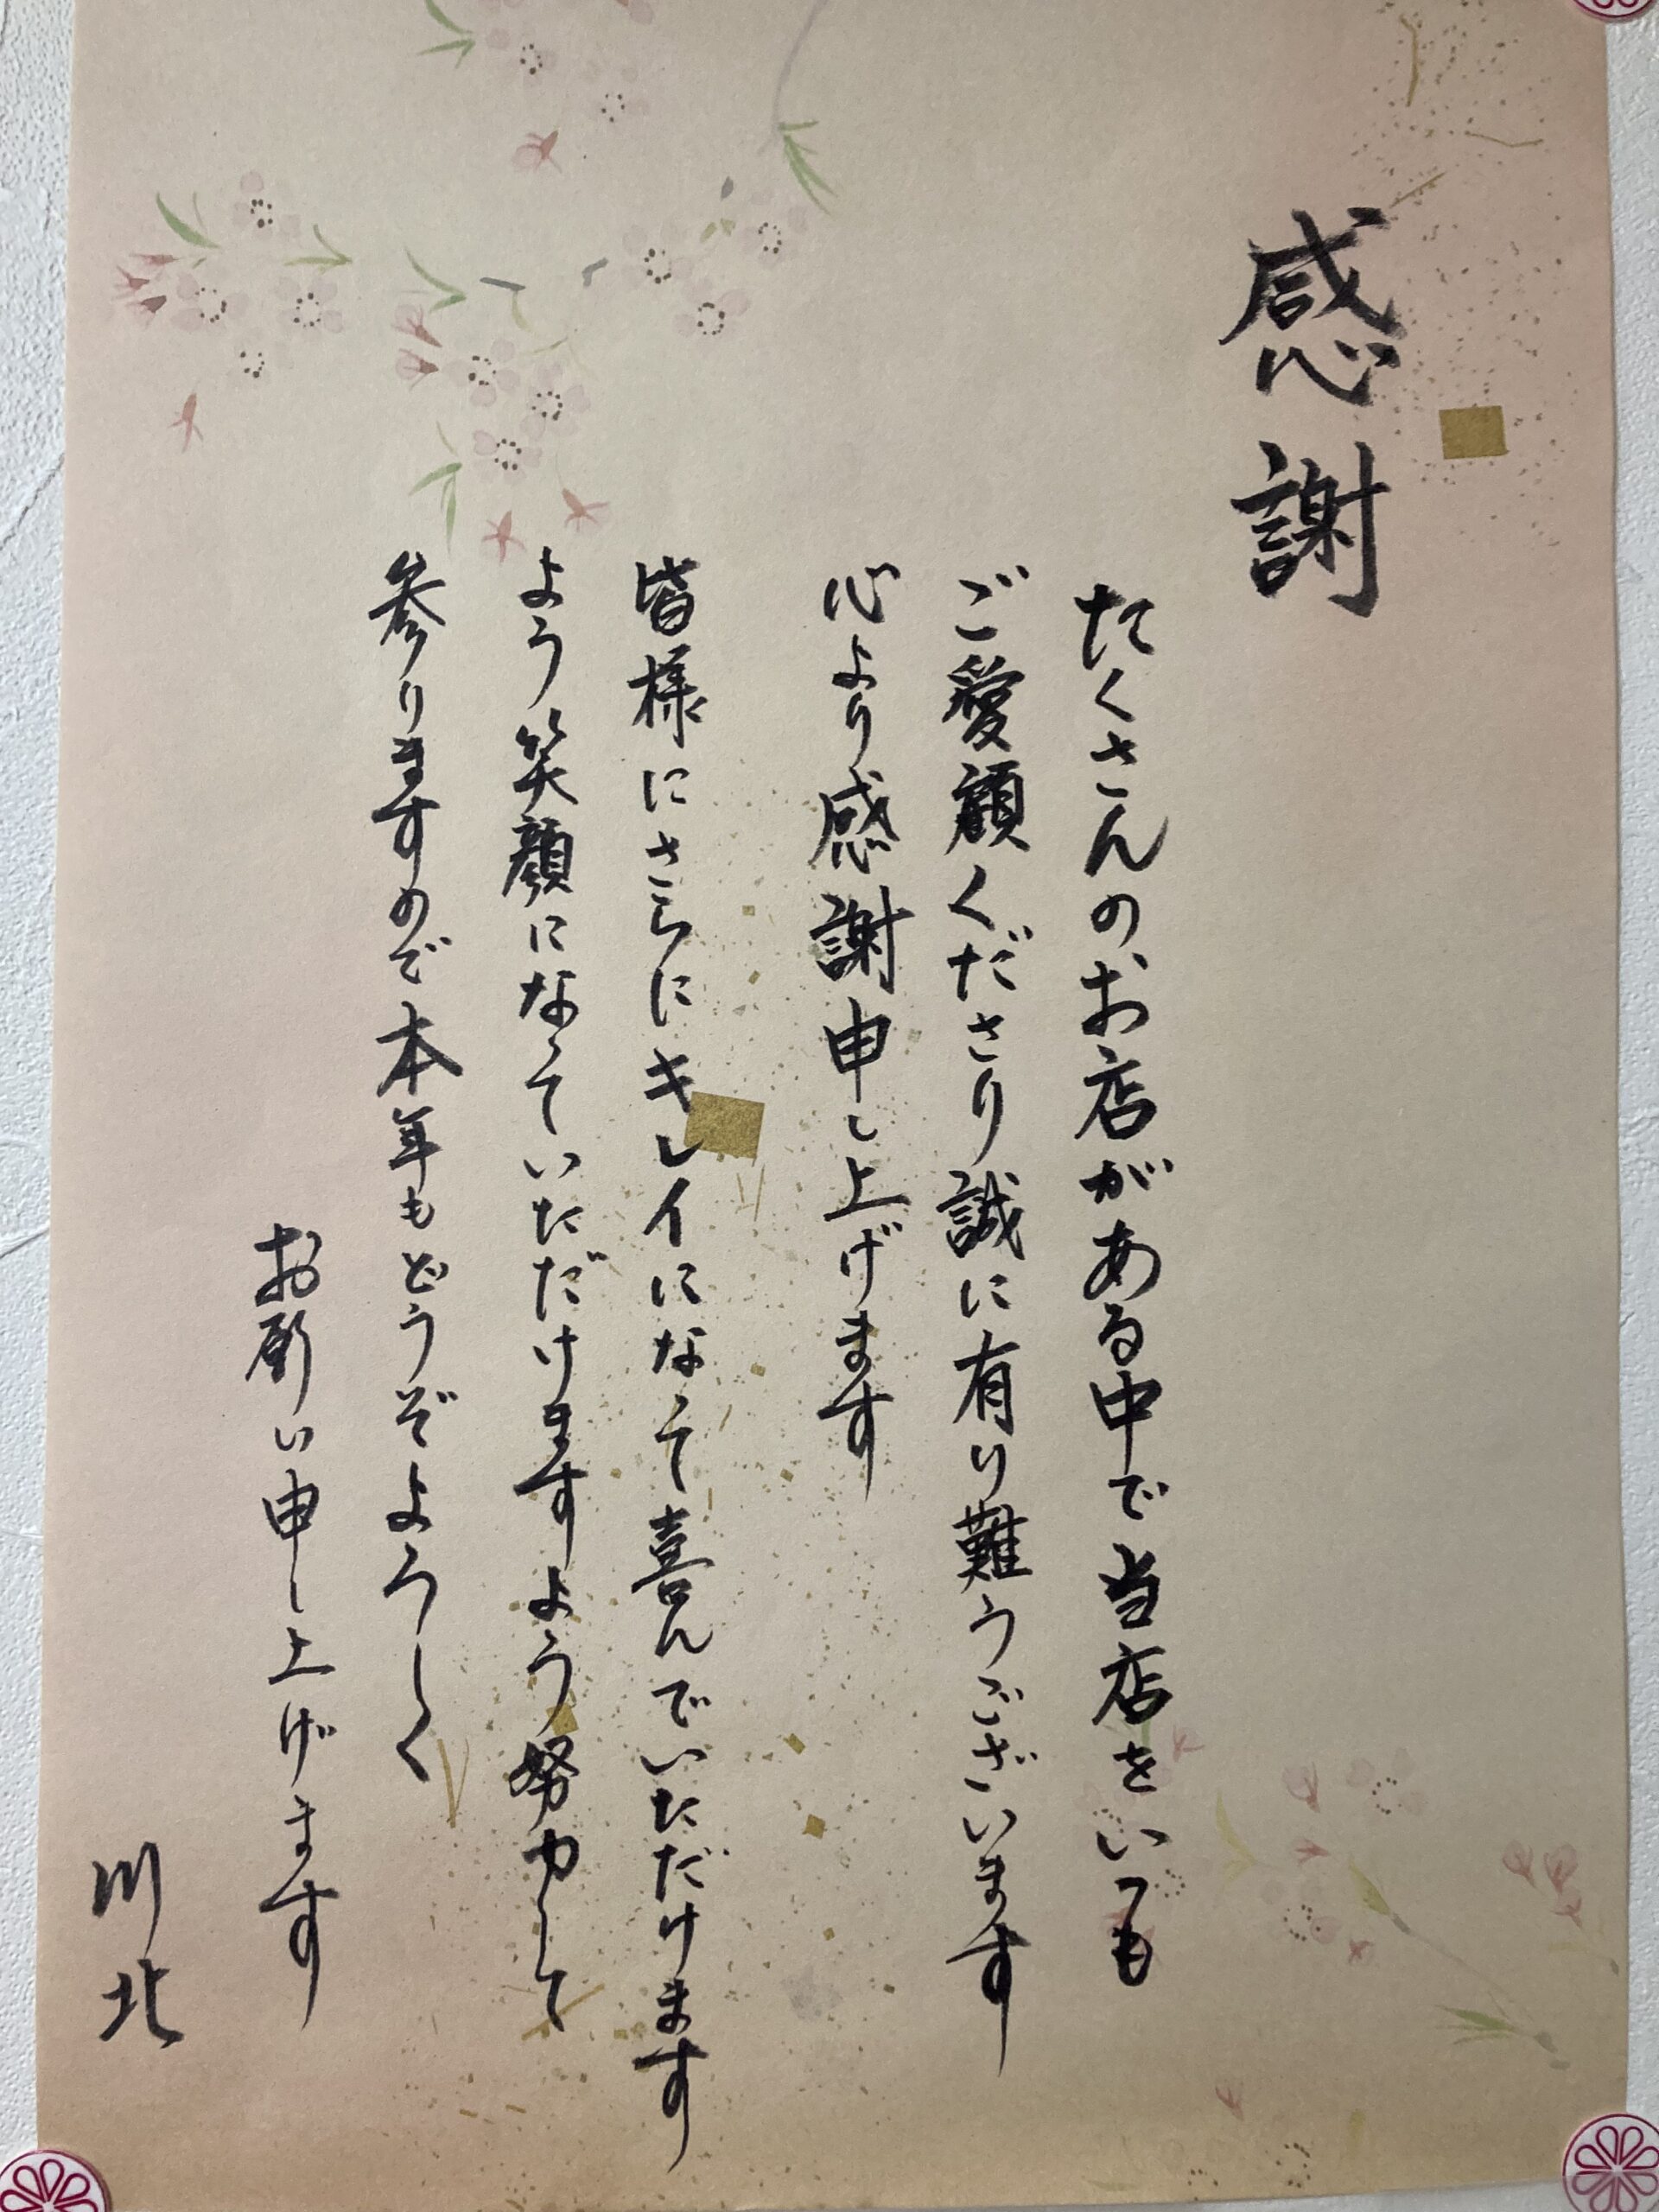 感謝
たくさんのお店がある中で当店をいつも
ご愛顧くださり誠に有り難うございます
心より感謝申し上げます
皆様にさらにキレイになって喜んでいただけます
よう笑顔になっていただけますよう努力して
参りますので本年もどうぞよろしく
お願い申し上げます
川北